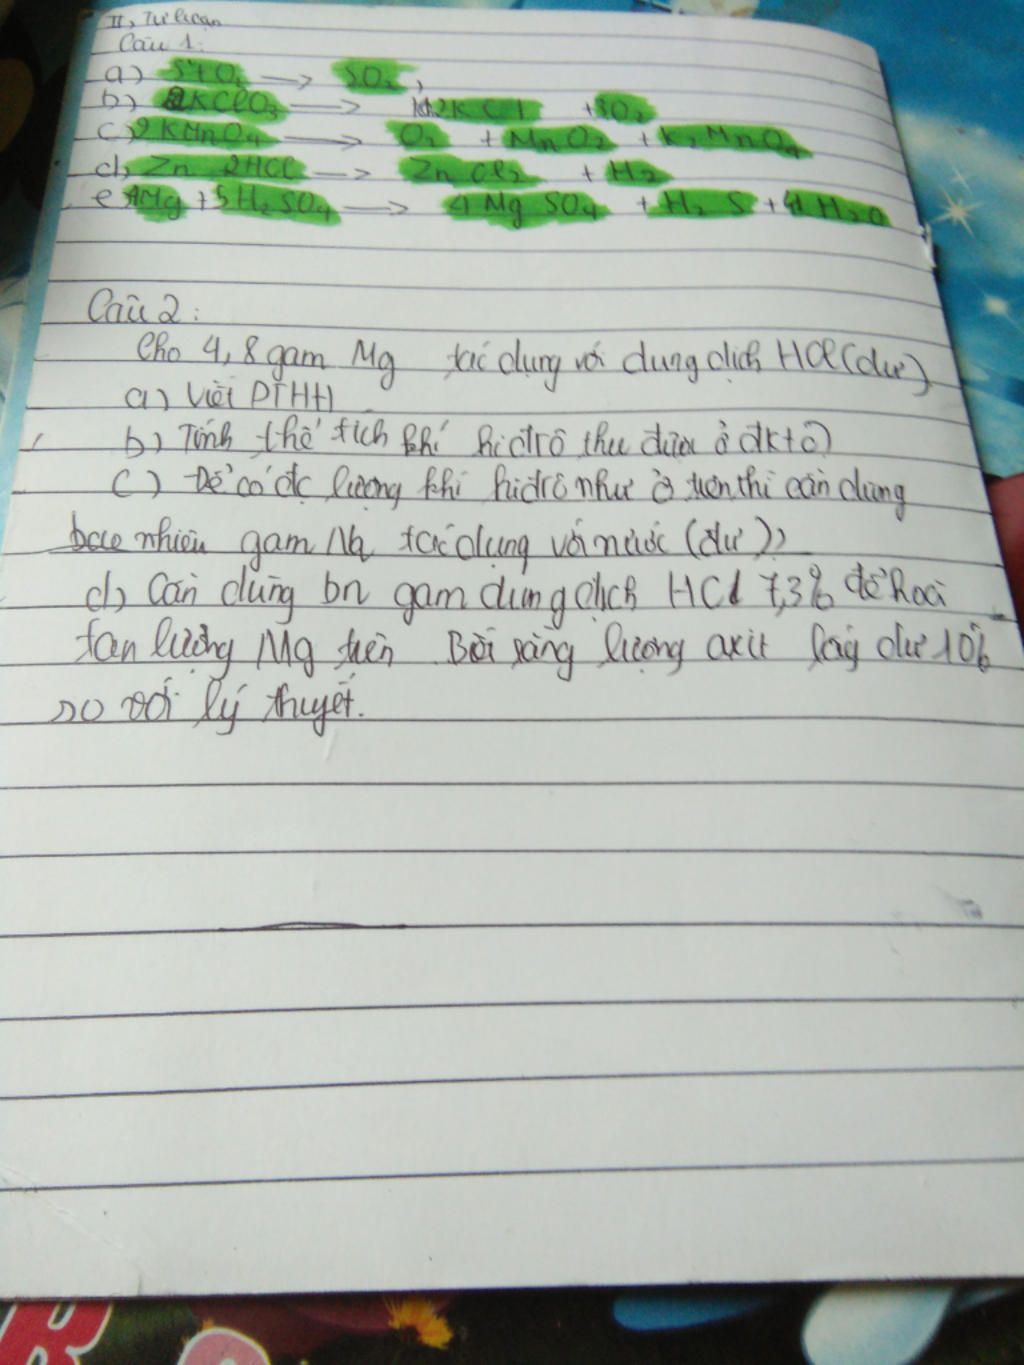 II, Tự luận
Câu 1:
a) S + O2 → SO2,
b) 2KClO3 → 2KCl + 3O2
c) 2KMnO4 → O2 + MnO2 + K2MnO4
d) Zn 2HCl → ZnCl2 + H2
e 4Mg + 5H2SO4 → 4MgSO4 + H2S + 4H2O
Câu 2:
Cho 4,8 gam Mg tác dụng với dung dịch HCl (dư)
a) Viết PTHH
b) Tính thể tích khí hiđrô thu được ở đktc)
c) Để có đc lượng khí hiđrô như ở trên thì cần dùng
bao nhiêu gam Na tác dụng với nước (dư))
d) Cần dùng bn gam dung dịch HCl 7,3% để hoà
tan lượng Mg trên Biết rằng lượng axit lấy dư 10%
so với lý thuyết.